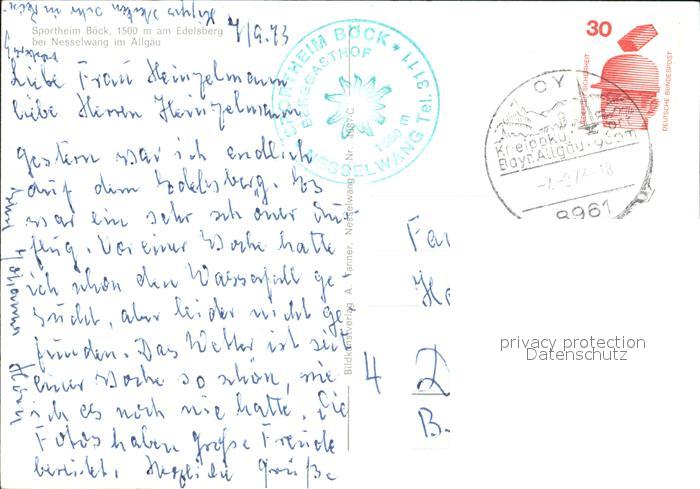 Sportheim Böck, 1500 m am Edelsberg
bei Nesselwang im Allgäu
7/9.73
Liebe Frau Heinzelmann
liebe Herren Heinzelmann
gestern war ich endlich
auf dem Edelsberg. Es
war ein sehr schöner Aus
flug. Vor einer Woche hatte
ich schon den Wasserfall ge
sucht, aber leider nicht ge
funden. Das Wetter ist seit
einer Woche so schön, wie
ich es noch nie hatte. Die
Fotos haben große Freude
bereitet. Herzliche Grüße
Johanna
SPORTHEIM BÖCK
BERGGASTHOF
1500 m
NESSELWANG Tel. 3111
Bildkunstverlag A. Tanner, Nesselwang
30
DEUTSCHE BUNDESPOST
OY
Kneippku
Bayr. Allgäu
8961
Fa
He
4 D
B.
privacy protection
Datenschutz